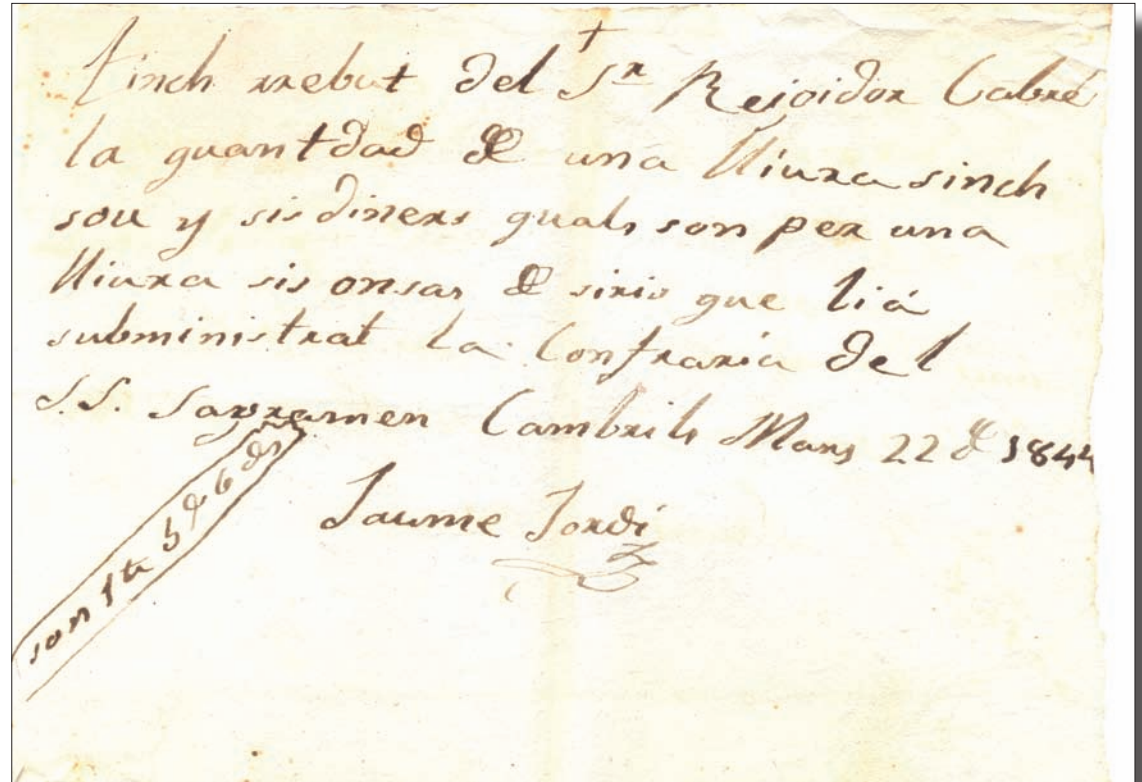 †
Tinch rrebut del Sr Reigidor Cabré
la quantdad de una lliura sinch
sou y sis diners quals son per una
lliura sis onsas de siris que liá
subministrat la Confraria del
S.S. Sagramen Cambrils Mars 22 de 1844
Jaume Jordi
son 1 tt 5 s 6 ds